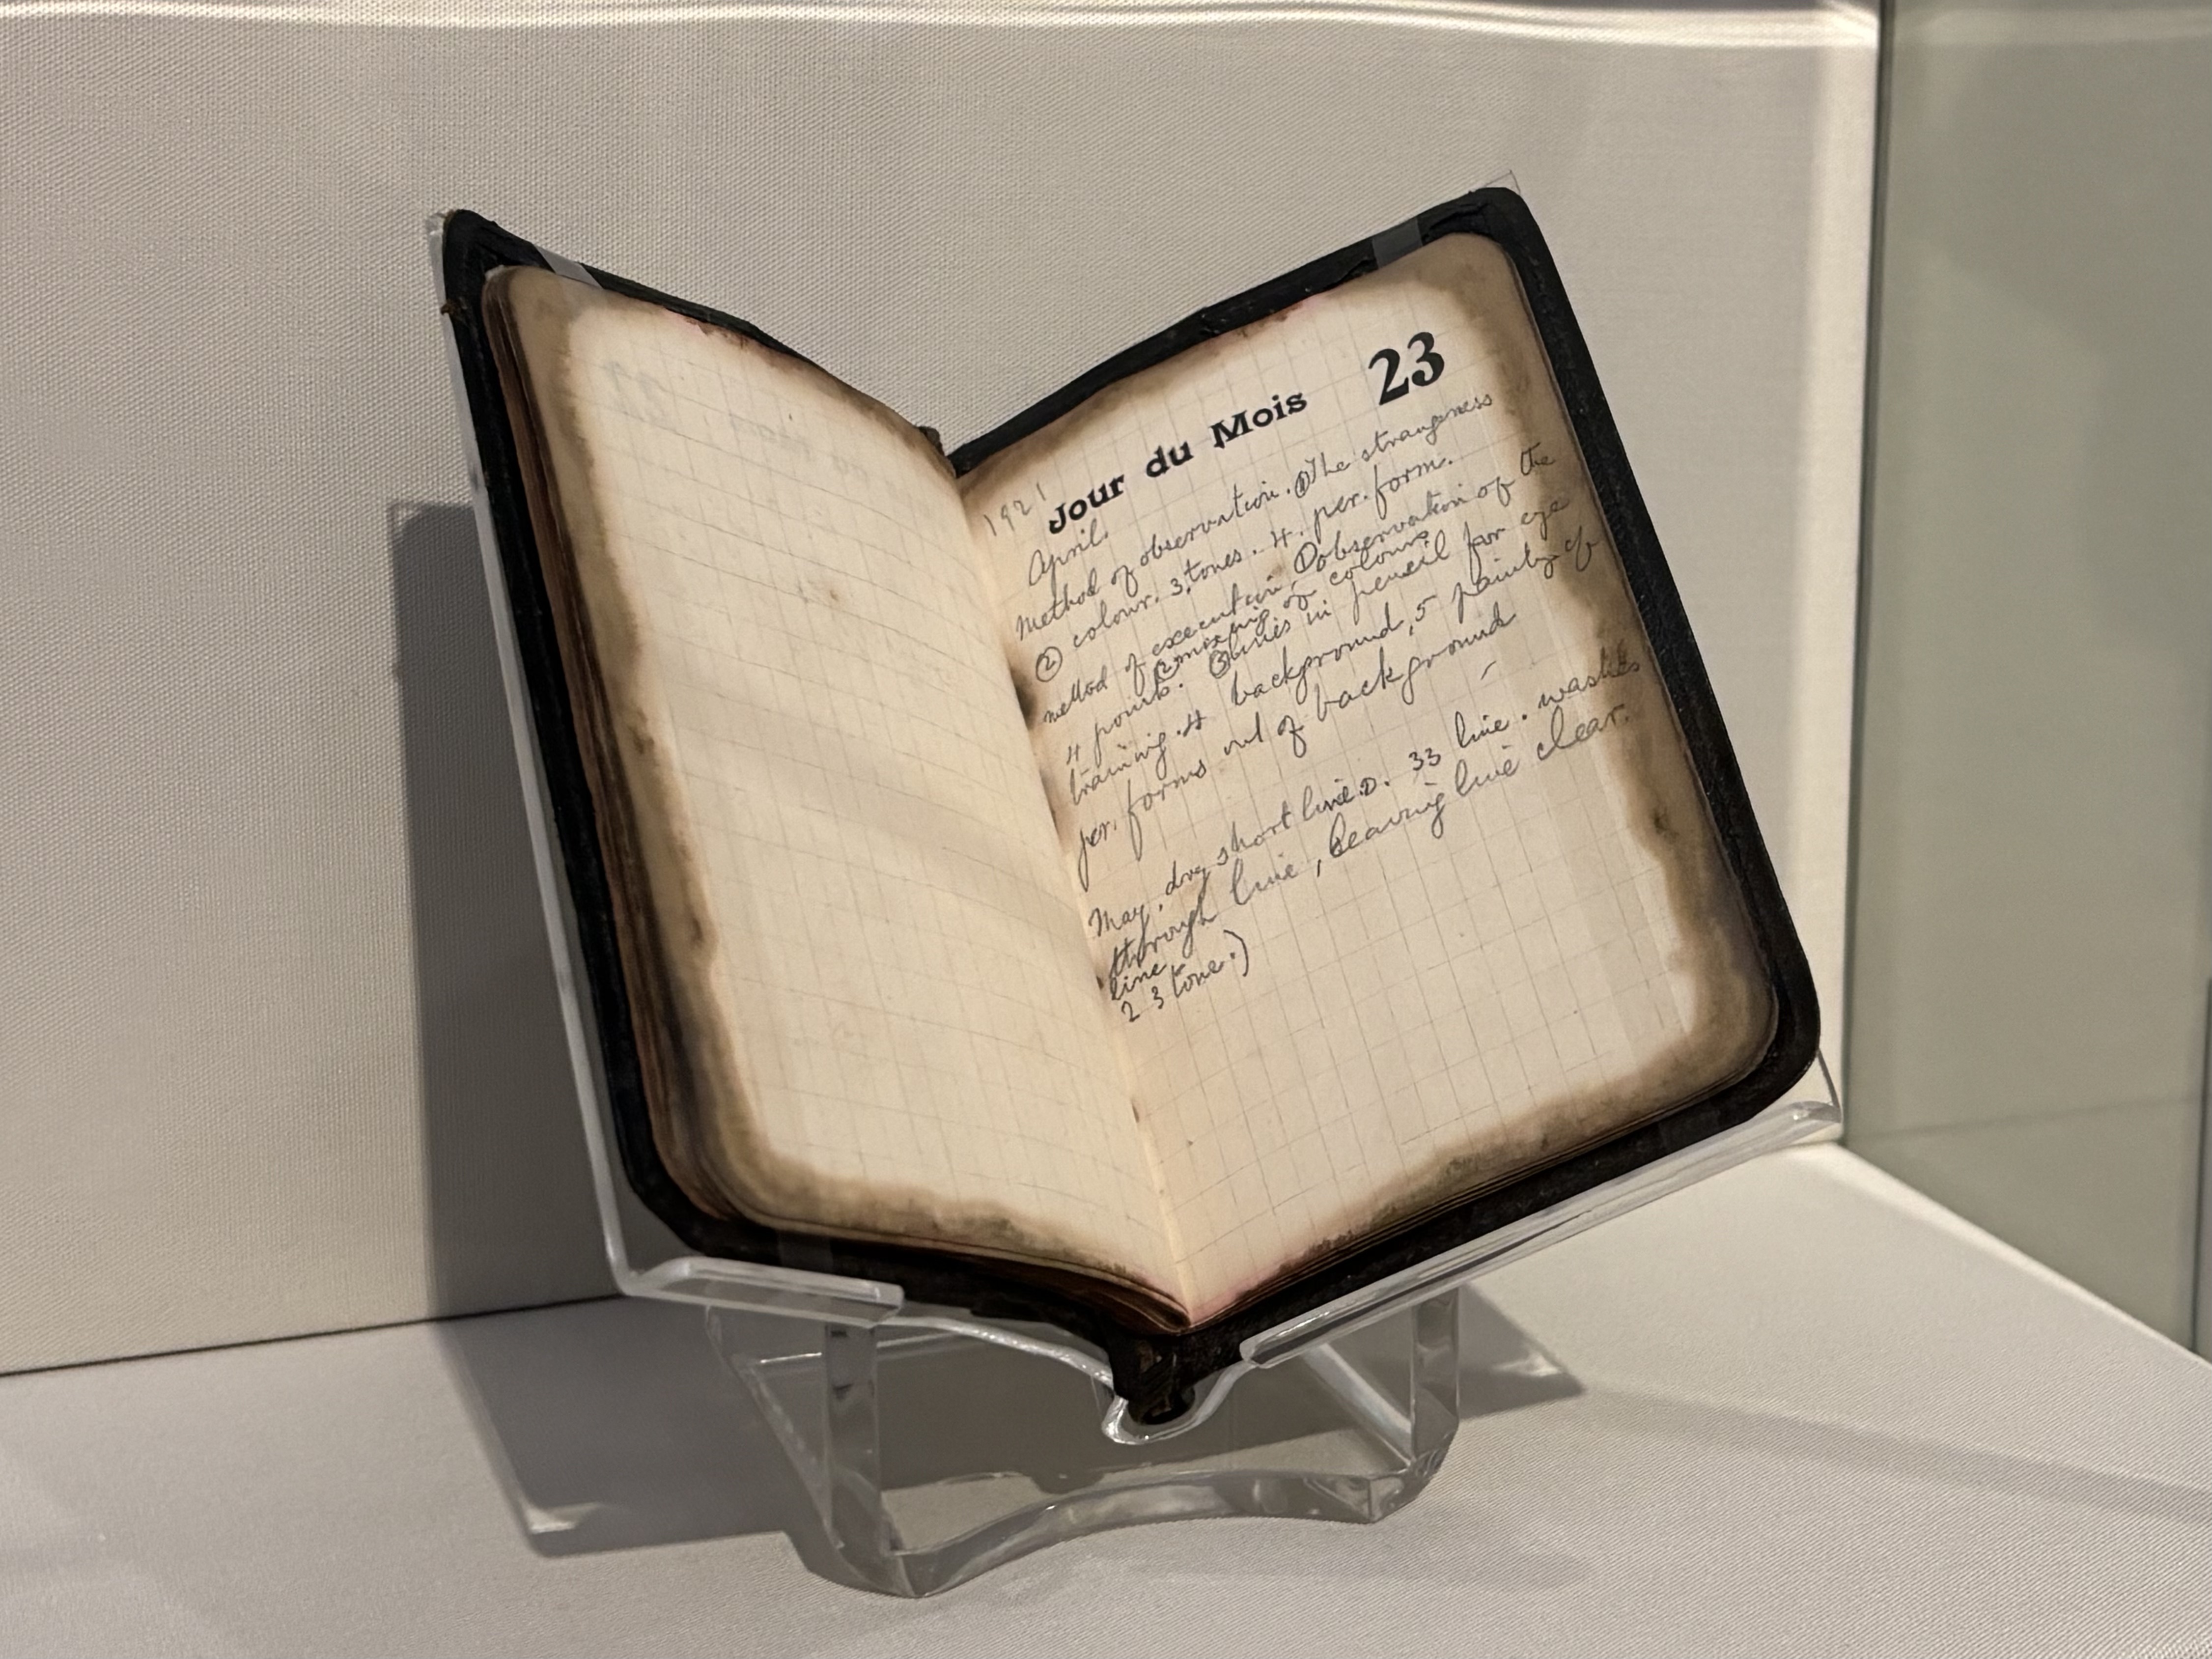 Jour du Mois 23
1921
April.
Method of observation. ① The strangeness
② colour. 3. tones. 4. per. form.
method of execution ① observation of the
4 points. ② mixing of colours
③ lines in pencil for eye
training. 4 background, 5 painty of
per. forms out of background
May. dry short line. 33 line. washes
through line, leaving line clear.
line
2 3 tone.)